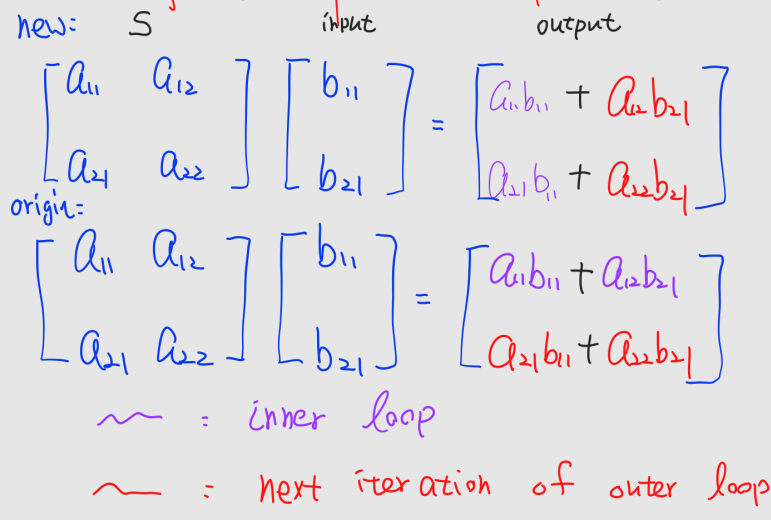 new: S input output
[a₁₁ a₁₂] [b₁₁] = [a₁₁b₁₁ + a₁₂b₂₁]
[a₂₁ a₂₂] [b₂₁] [a₂₁b₁₁ + a₂₂b₂₁]
origin:
[a₁₁ a₁₂] [b₁₁] = [a₁₁b₁₁ + a₁₂b₂₁]
[a₂₁ a₂₂] [b₂₁] [a₂₁b₁₁ + a₂₂b₂₁]
: inner loop
: next iteration of outer loop